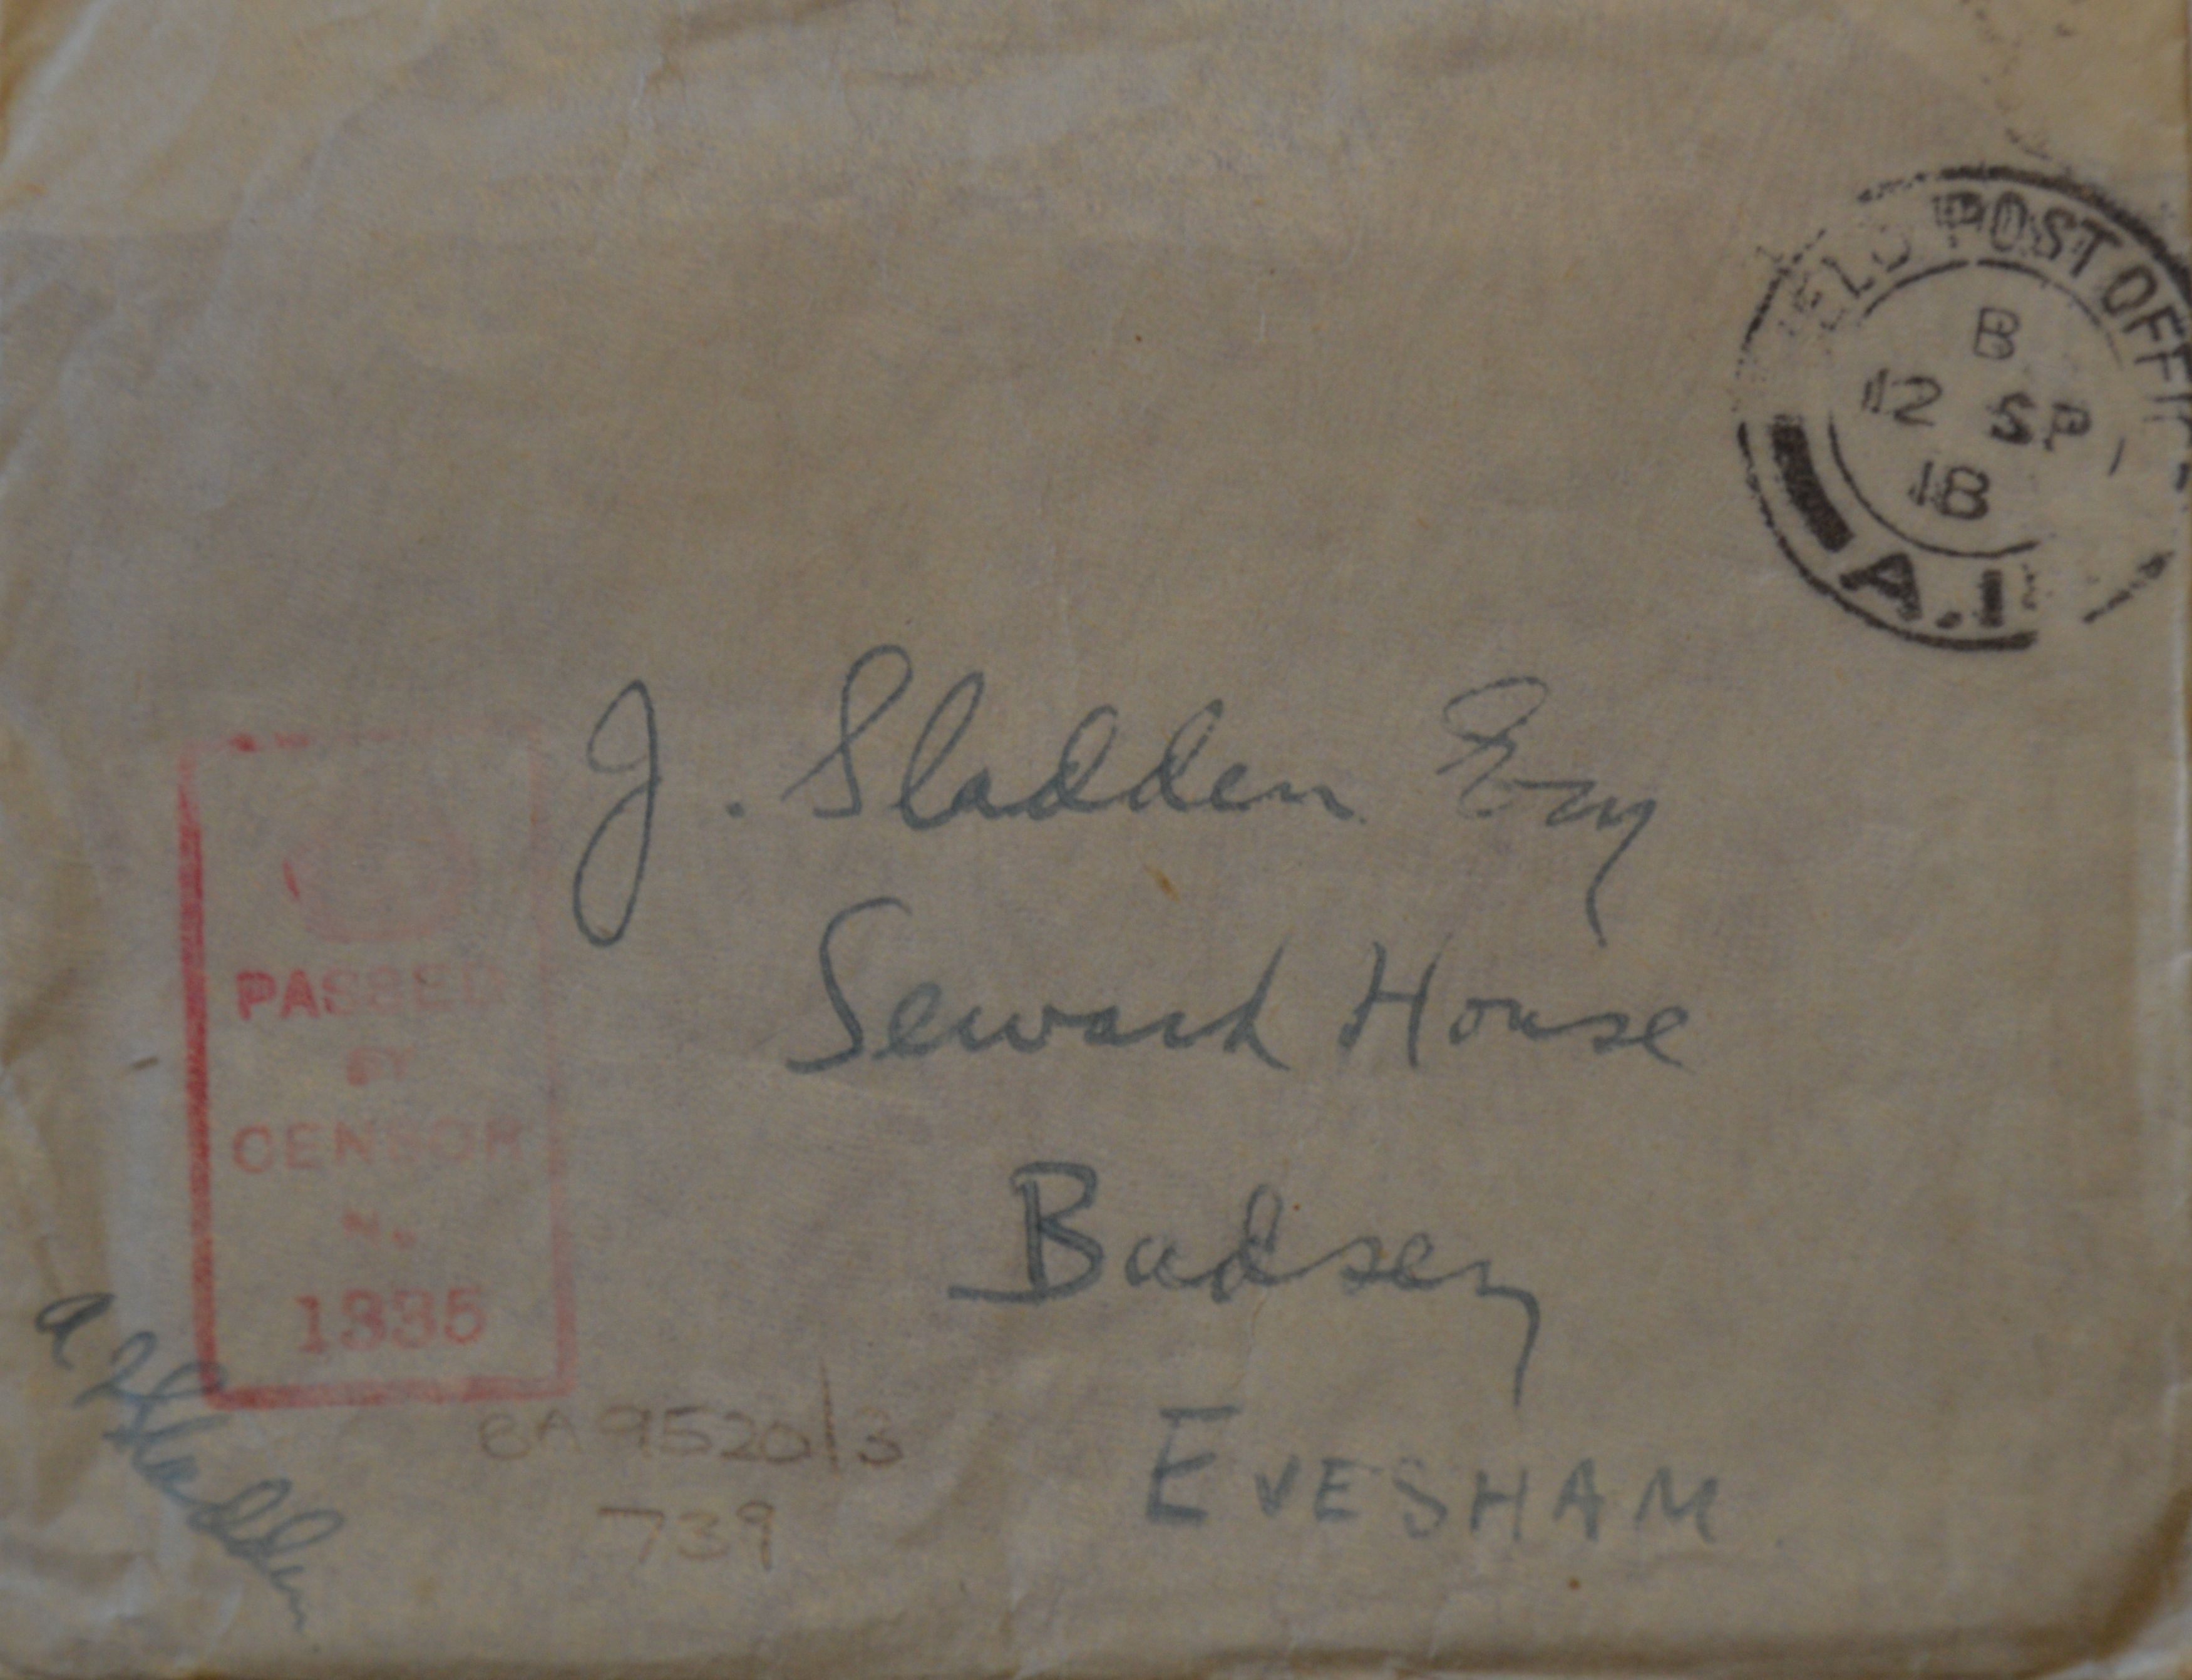 FIELD POST OFFICE
B
12 SP
18
A.1
J. Sladden Esq
Seward House
Badsey
EVESHAM
PASSED
BY
CENSOR
No
1335
A Sladden
BA 9520/3
739